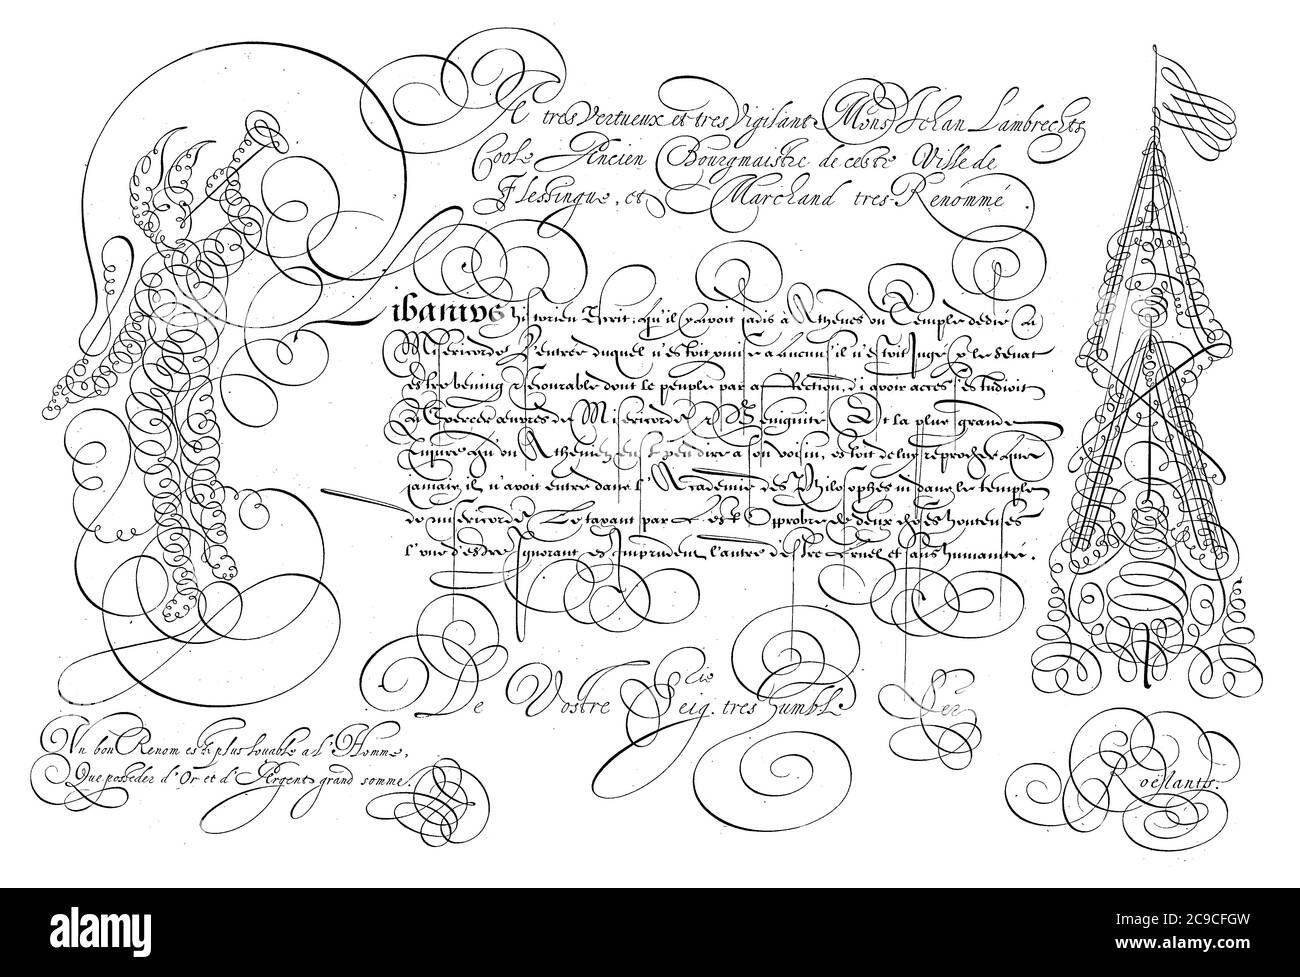 A tres Vertueux et tres Vigilant Mons.r Jehan Lambrechts
Coole Ancien Bourgmaistre de ceste Ville de
Flessingue, et Marchand tres-Renommé
Libanius historien Escrit, qu'il y avoit jadis à Athenes un Temple dedié a
Misericorde L'entrée duquel n'estoit permise a aucun s'il n'estoit jugé p. le Senat
estre bening & secourable dont le peuple par affection, d'i avoir acces s'estudioit
a Exercer œuvres de Misericorde & Benignité. Et la plus grande
injure qu'un Athenien peut dire a son voisin, estoit de luy reprocher que
jamais il n'avoit entré dans l'Academie des Philosophes ni dans le temple
de misericorde Le taxant par cest Opprobre de deux choses honteuses
l'une d'estre ignorant et imprudent l'autre d'estre Cruel et sans humanité.
De Vostre Seig.rie tres humble Ser
Un bon Renom est plus louable a l'Homme,
Que posseder d'Or et d'Argent grand somme.
Roelants.
alamy
Image ID: 2C9CFGW
www.alamy.com